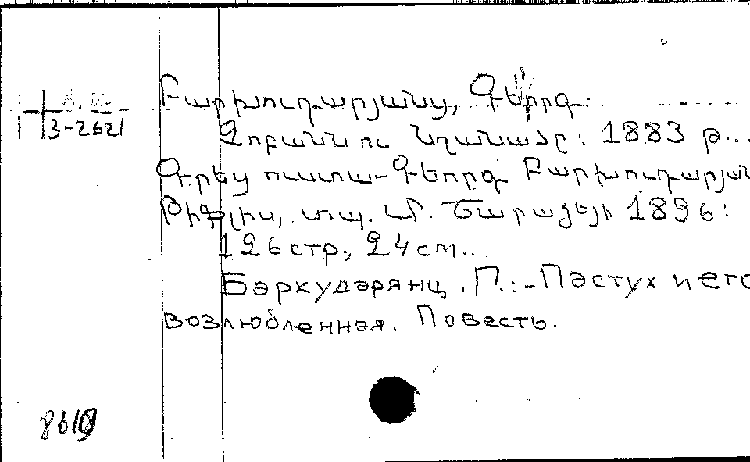 Բարխուդարյանց, Գևորգ
3-2621
Չոբանն ու նշանածը: 1883 թ...
Գրեց ուստա-Գևորգ Բարխուդարյան
Թիֆլիս, տպ. Մ. Շարաձեյի 1896:
126 стр, 24 см..
Бархударянц. П.:-Пастух и его
возлюбленная. Повесть.